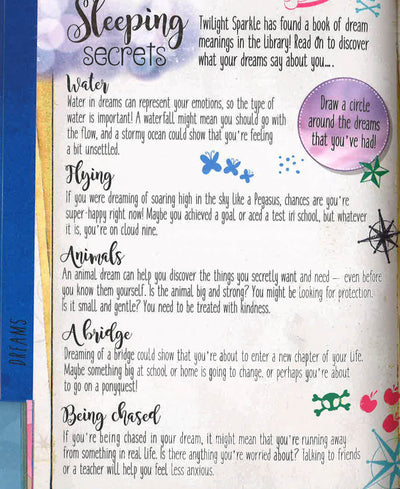 Sleeping
secrets
Twilight Sparkle has found a book of dream
meanings in the library! Read on to discover
what your dreams say about you....
Draw a circle
around the dreams
that you've had!
Water
Water in dreams can represent your emotions, so the type of
water is important! A waterfall might mean you should go with
the flow, and a stormy ocean could show that you're feeling
a bit unsettled.
Flying
If you were dreaming of soaring high in the sky like a Pegasus, chances are you're
super-happy right now! Maybe you achieved a goal or aced a test in school, but whatever
it is, you're on cloud nine.
Animals
An animal dream can help you discover the things you secretly want and need – even before
you know them yourself. Is the animal big and strong? You might be looking for protection.
Is it small and gentle? You need to be treated with kindness.
A bridge
Dreaming of a bridge could show that you're about to enter a new chapter of your life.
Maybe something big at school or home is going to change, or perhaps you're about
to go on a ponyquest!
Being chased
If you're being chased in your dream, it might mean that you're running away
from something in real life. Is there anything you're worried about? Talking to friends
or a teacher will help you feel less anxious.
DREAMS